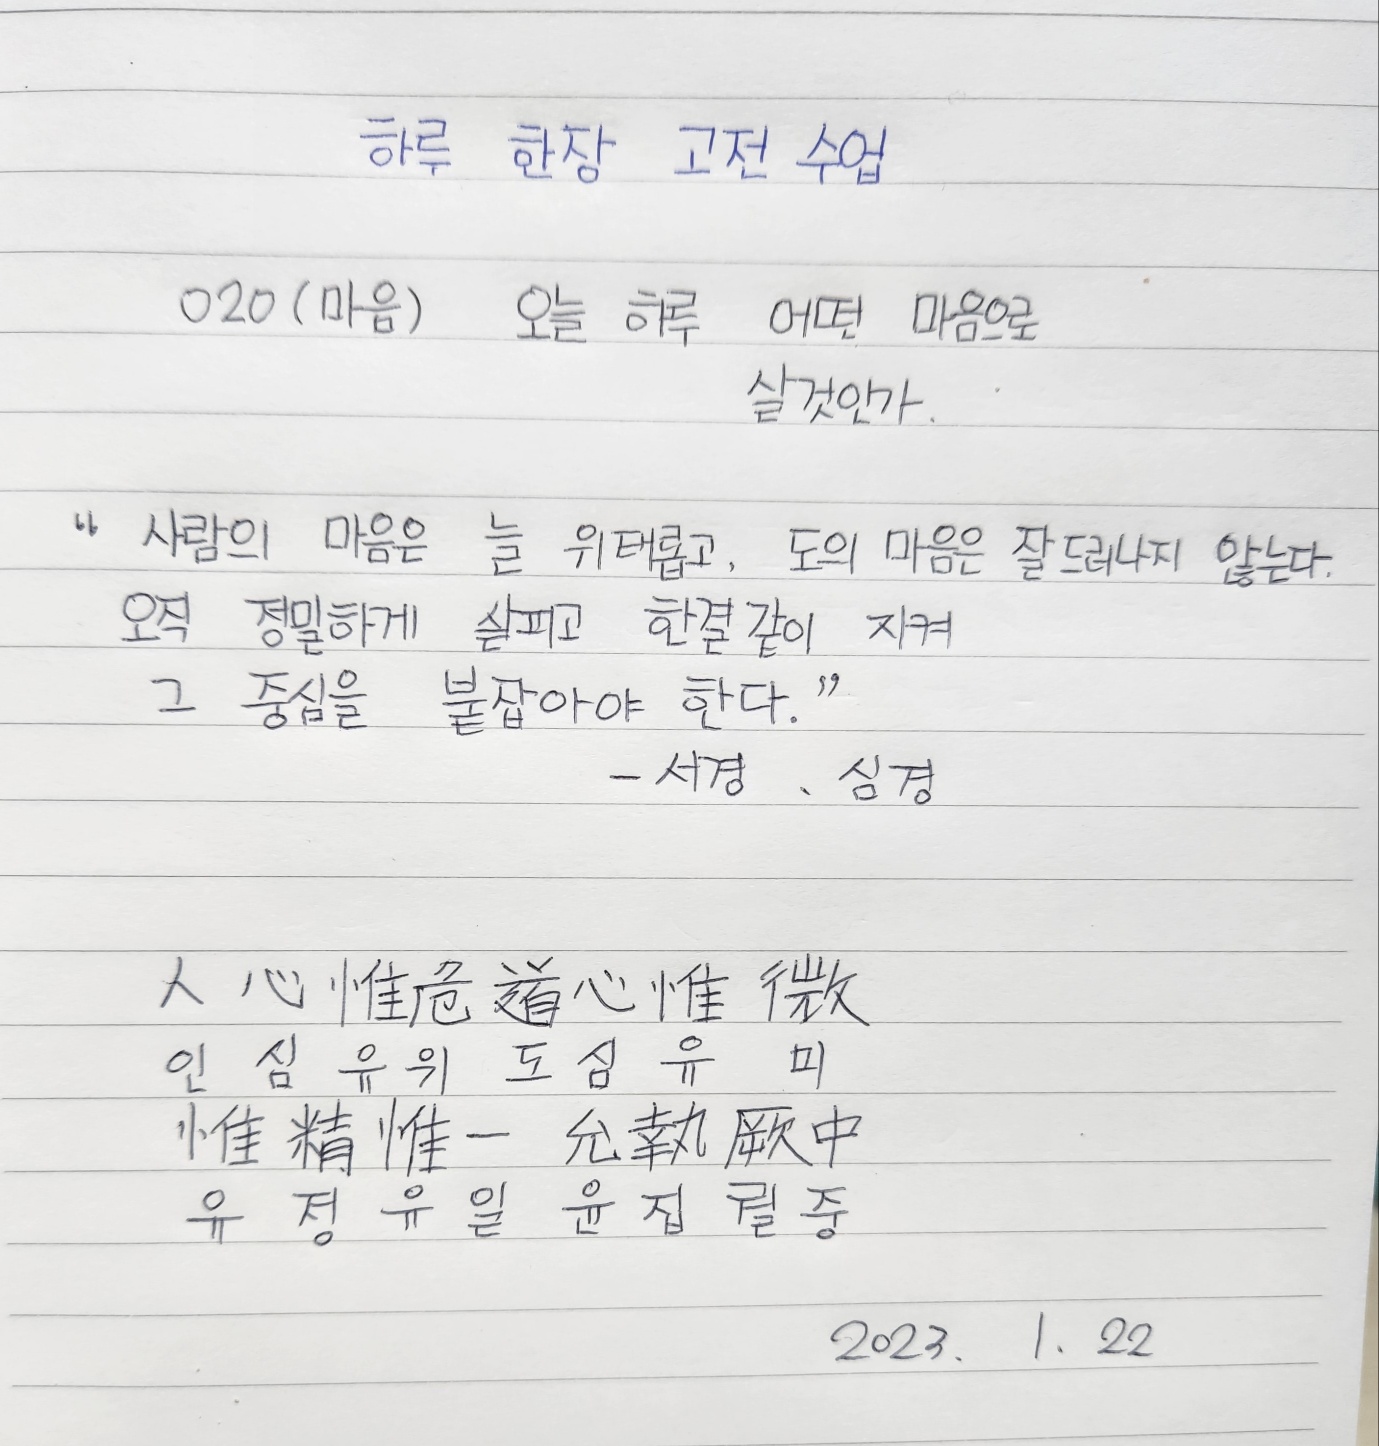 하루 한장 고전 수업
020(마음) 오늘 하루 어떤 마음으로
살것인가.
“ 사람의 마음은 늘 위태롭고, 도의 마음은 잘 드러나지 않는다.
오직 정밀하게 살피고 한결같이 지켜
그 중심을 붙잡아야 한다.”
- 서경 、 심경
人 心 惟 危 道 心 惟 微
인 심 유 위 도 심 유 미
惟 精 惟 一 允 執 厥 中
유 정 유 일 윤 집 궐 중
2023. 1. 22